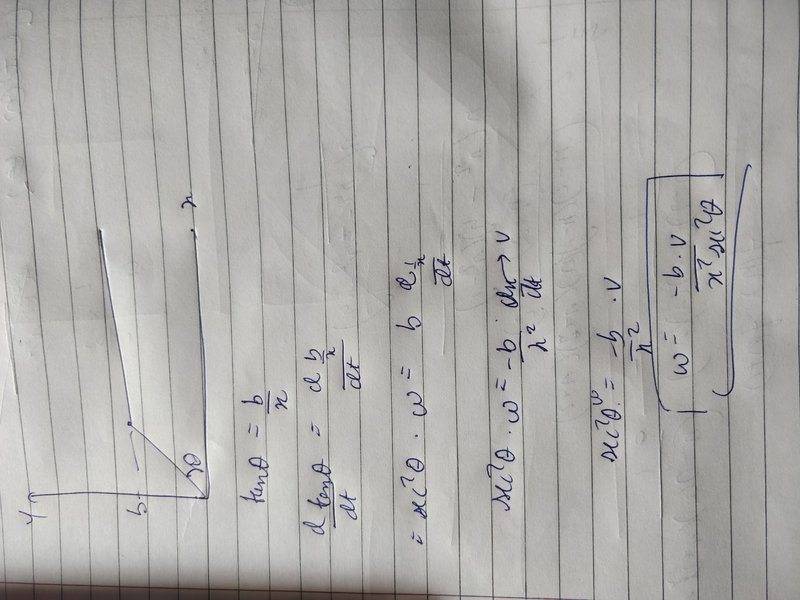 y
b
θ
x
tanθ = b/x
d tanθ/dt = d b/x/dt
= sec²θ · ω = b d 1/x/dt
sec²θ · ω = -b/x² · dx/dt → v
sec²θ ω = -b/x² · v
ω = -b·v/x² sec²θ